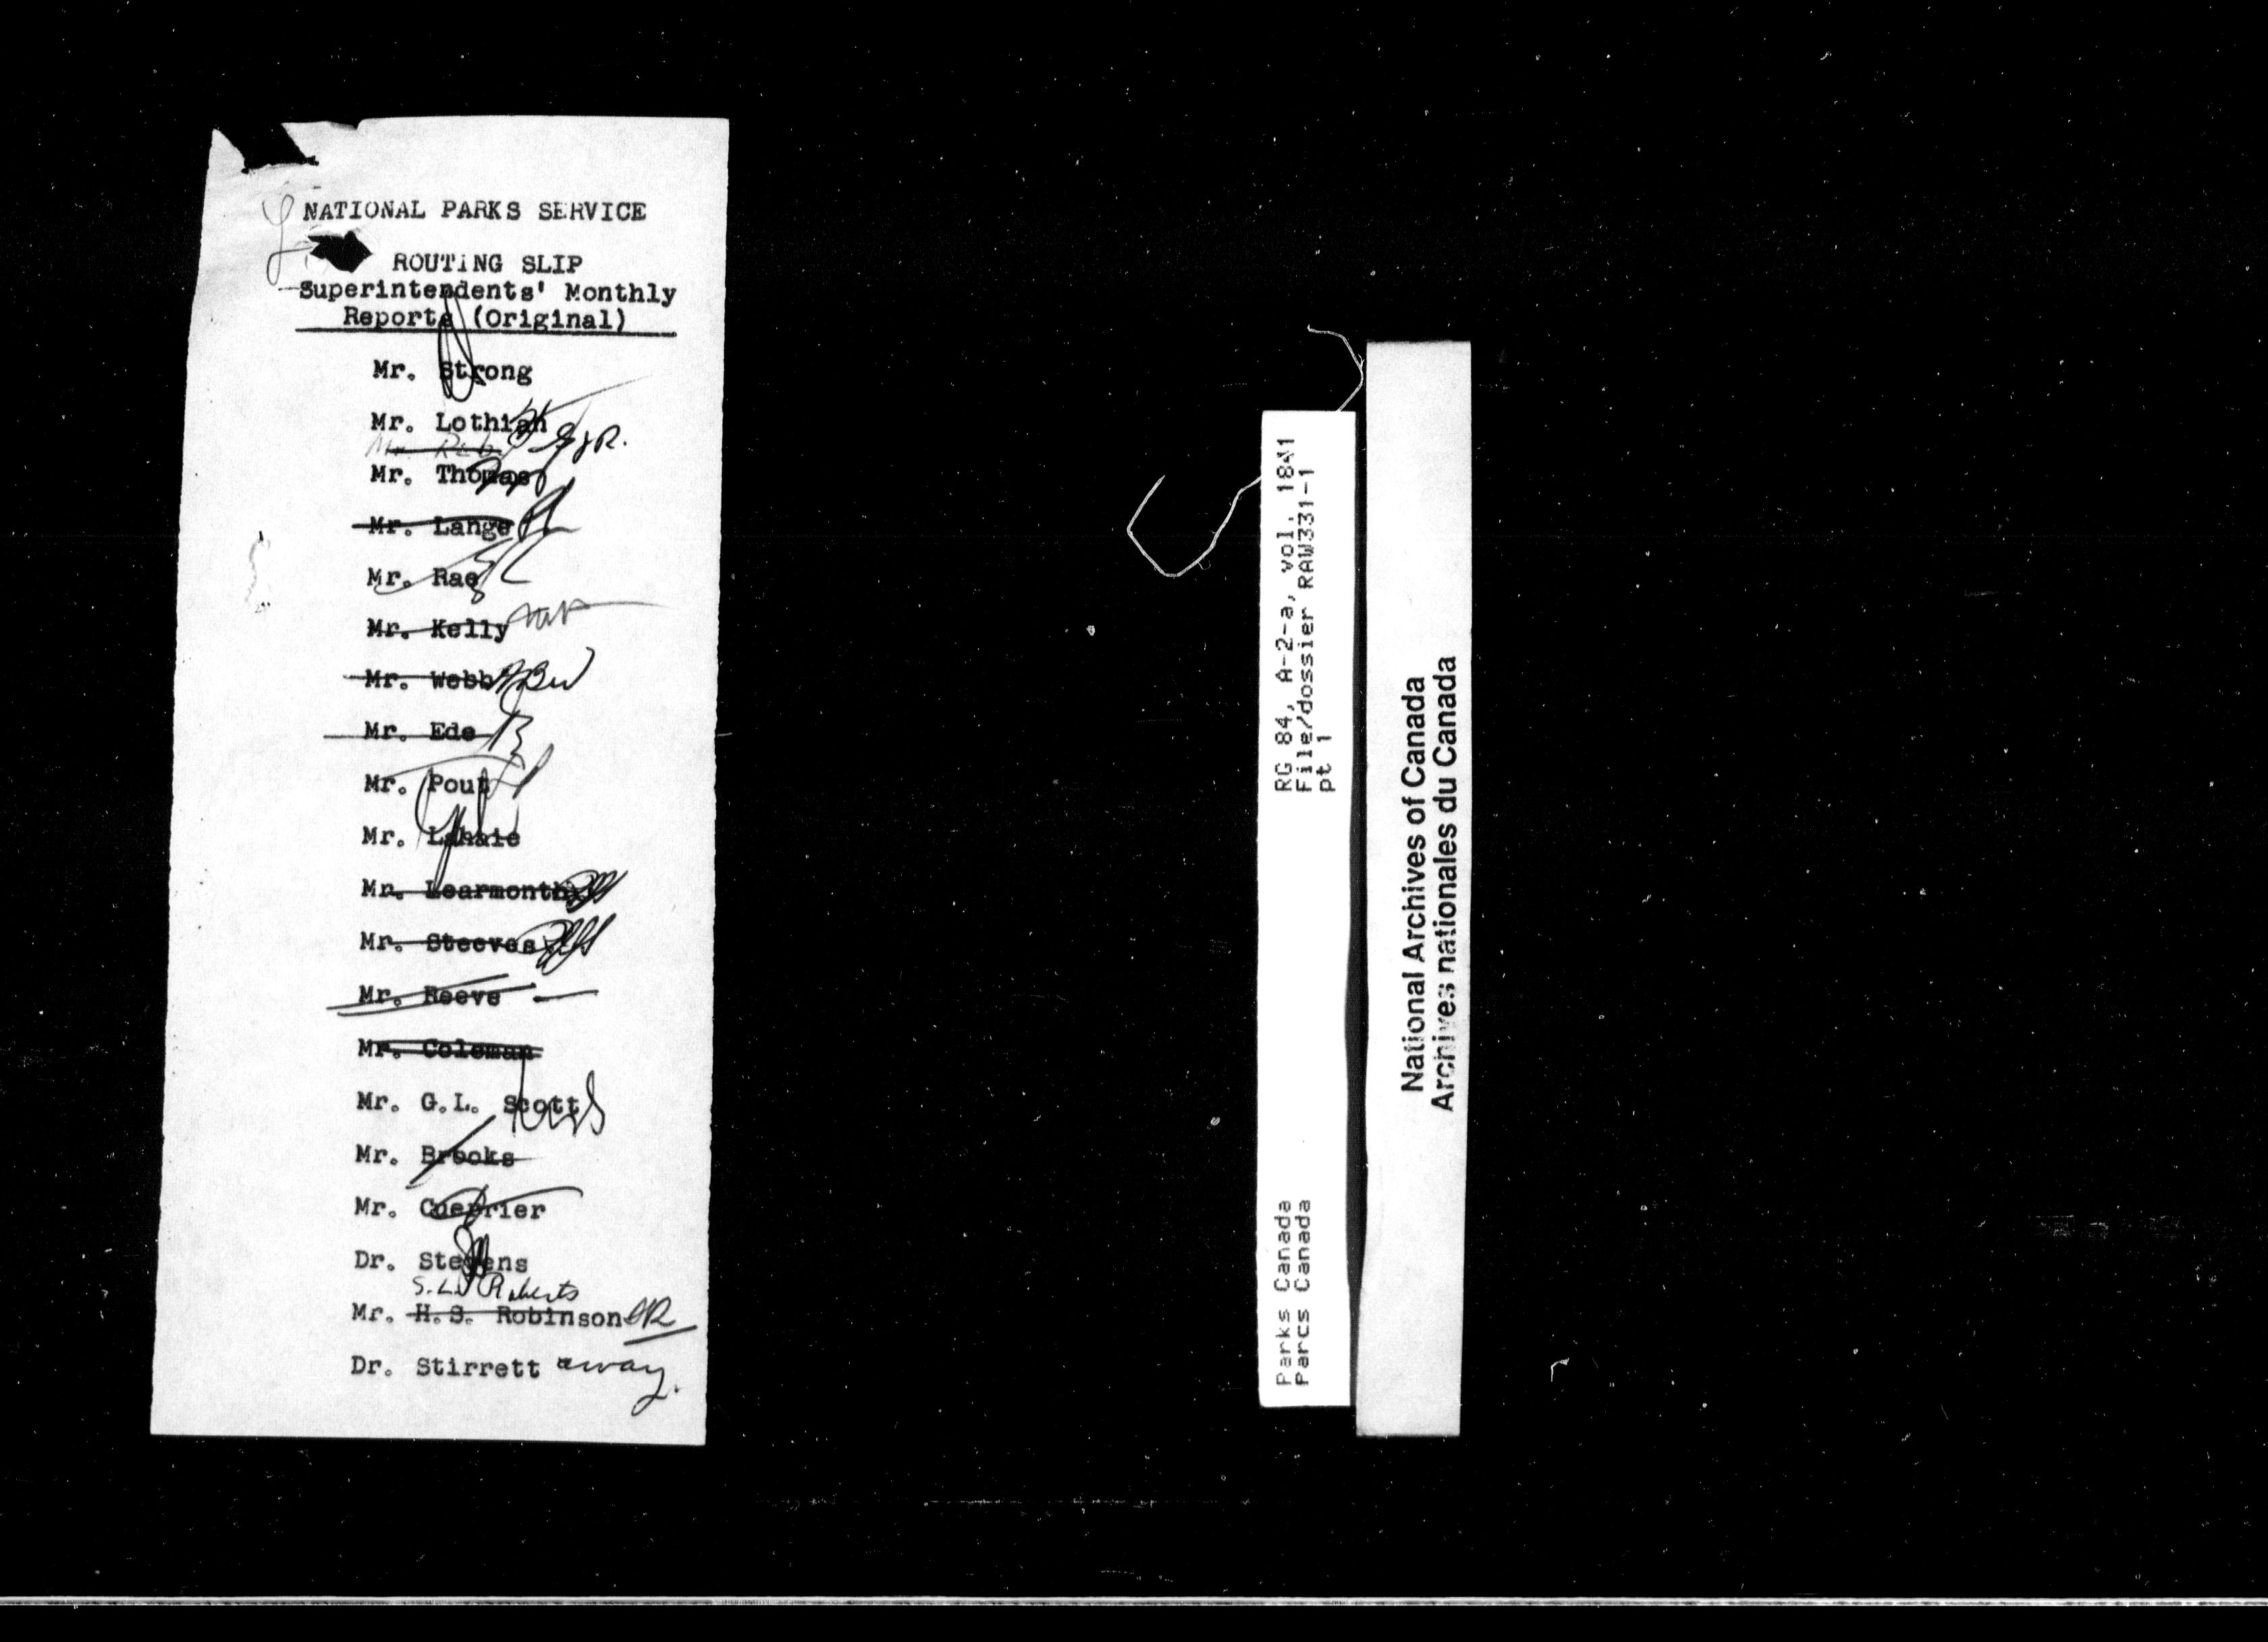 NATIONAL PARKS SERVICE
ROUTING SLIP
Superintendents' Monthly
Reports (Original)
Mr. Strong
Mr. Lothian
Mr. EJR.
Mr. Thomas
Mr. Lange
Mr. Rae
Mr. Kelly
Mr. Webb
Mr. Ede
Mr. Pout
Mr. Lahaie
Mr. Learmonth
Mr. Steeves
Mr. Reeve
Mr. Coleman
Mr. G.L. Scott
Mr. Brooks
Mr. Coerrier
Dr. Stevens
S.L. Roberts
Mr. H.S. Robinson SR
Dr. Stirrett away.
RG 84, A-2-a, vol. 1841
File/dossier RAW331-1
pt 1
Parks Canada
Parcs Canada
National Archives of Canada
Archives nationales du Canada